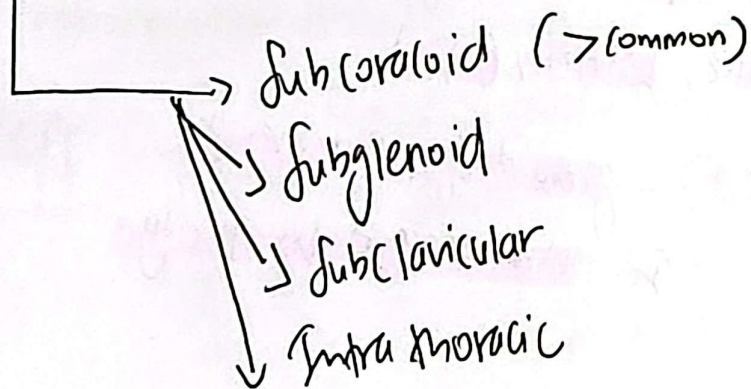 Subcoracoid (>common)
Subglenoid
Subclavicular
Intra thoracic